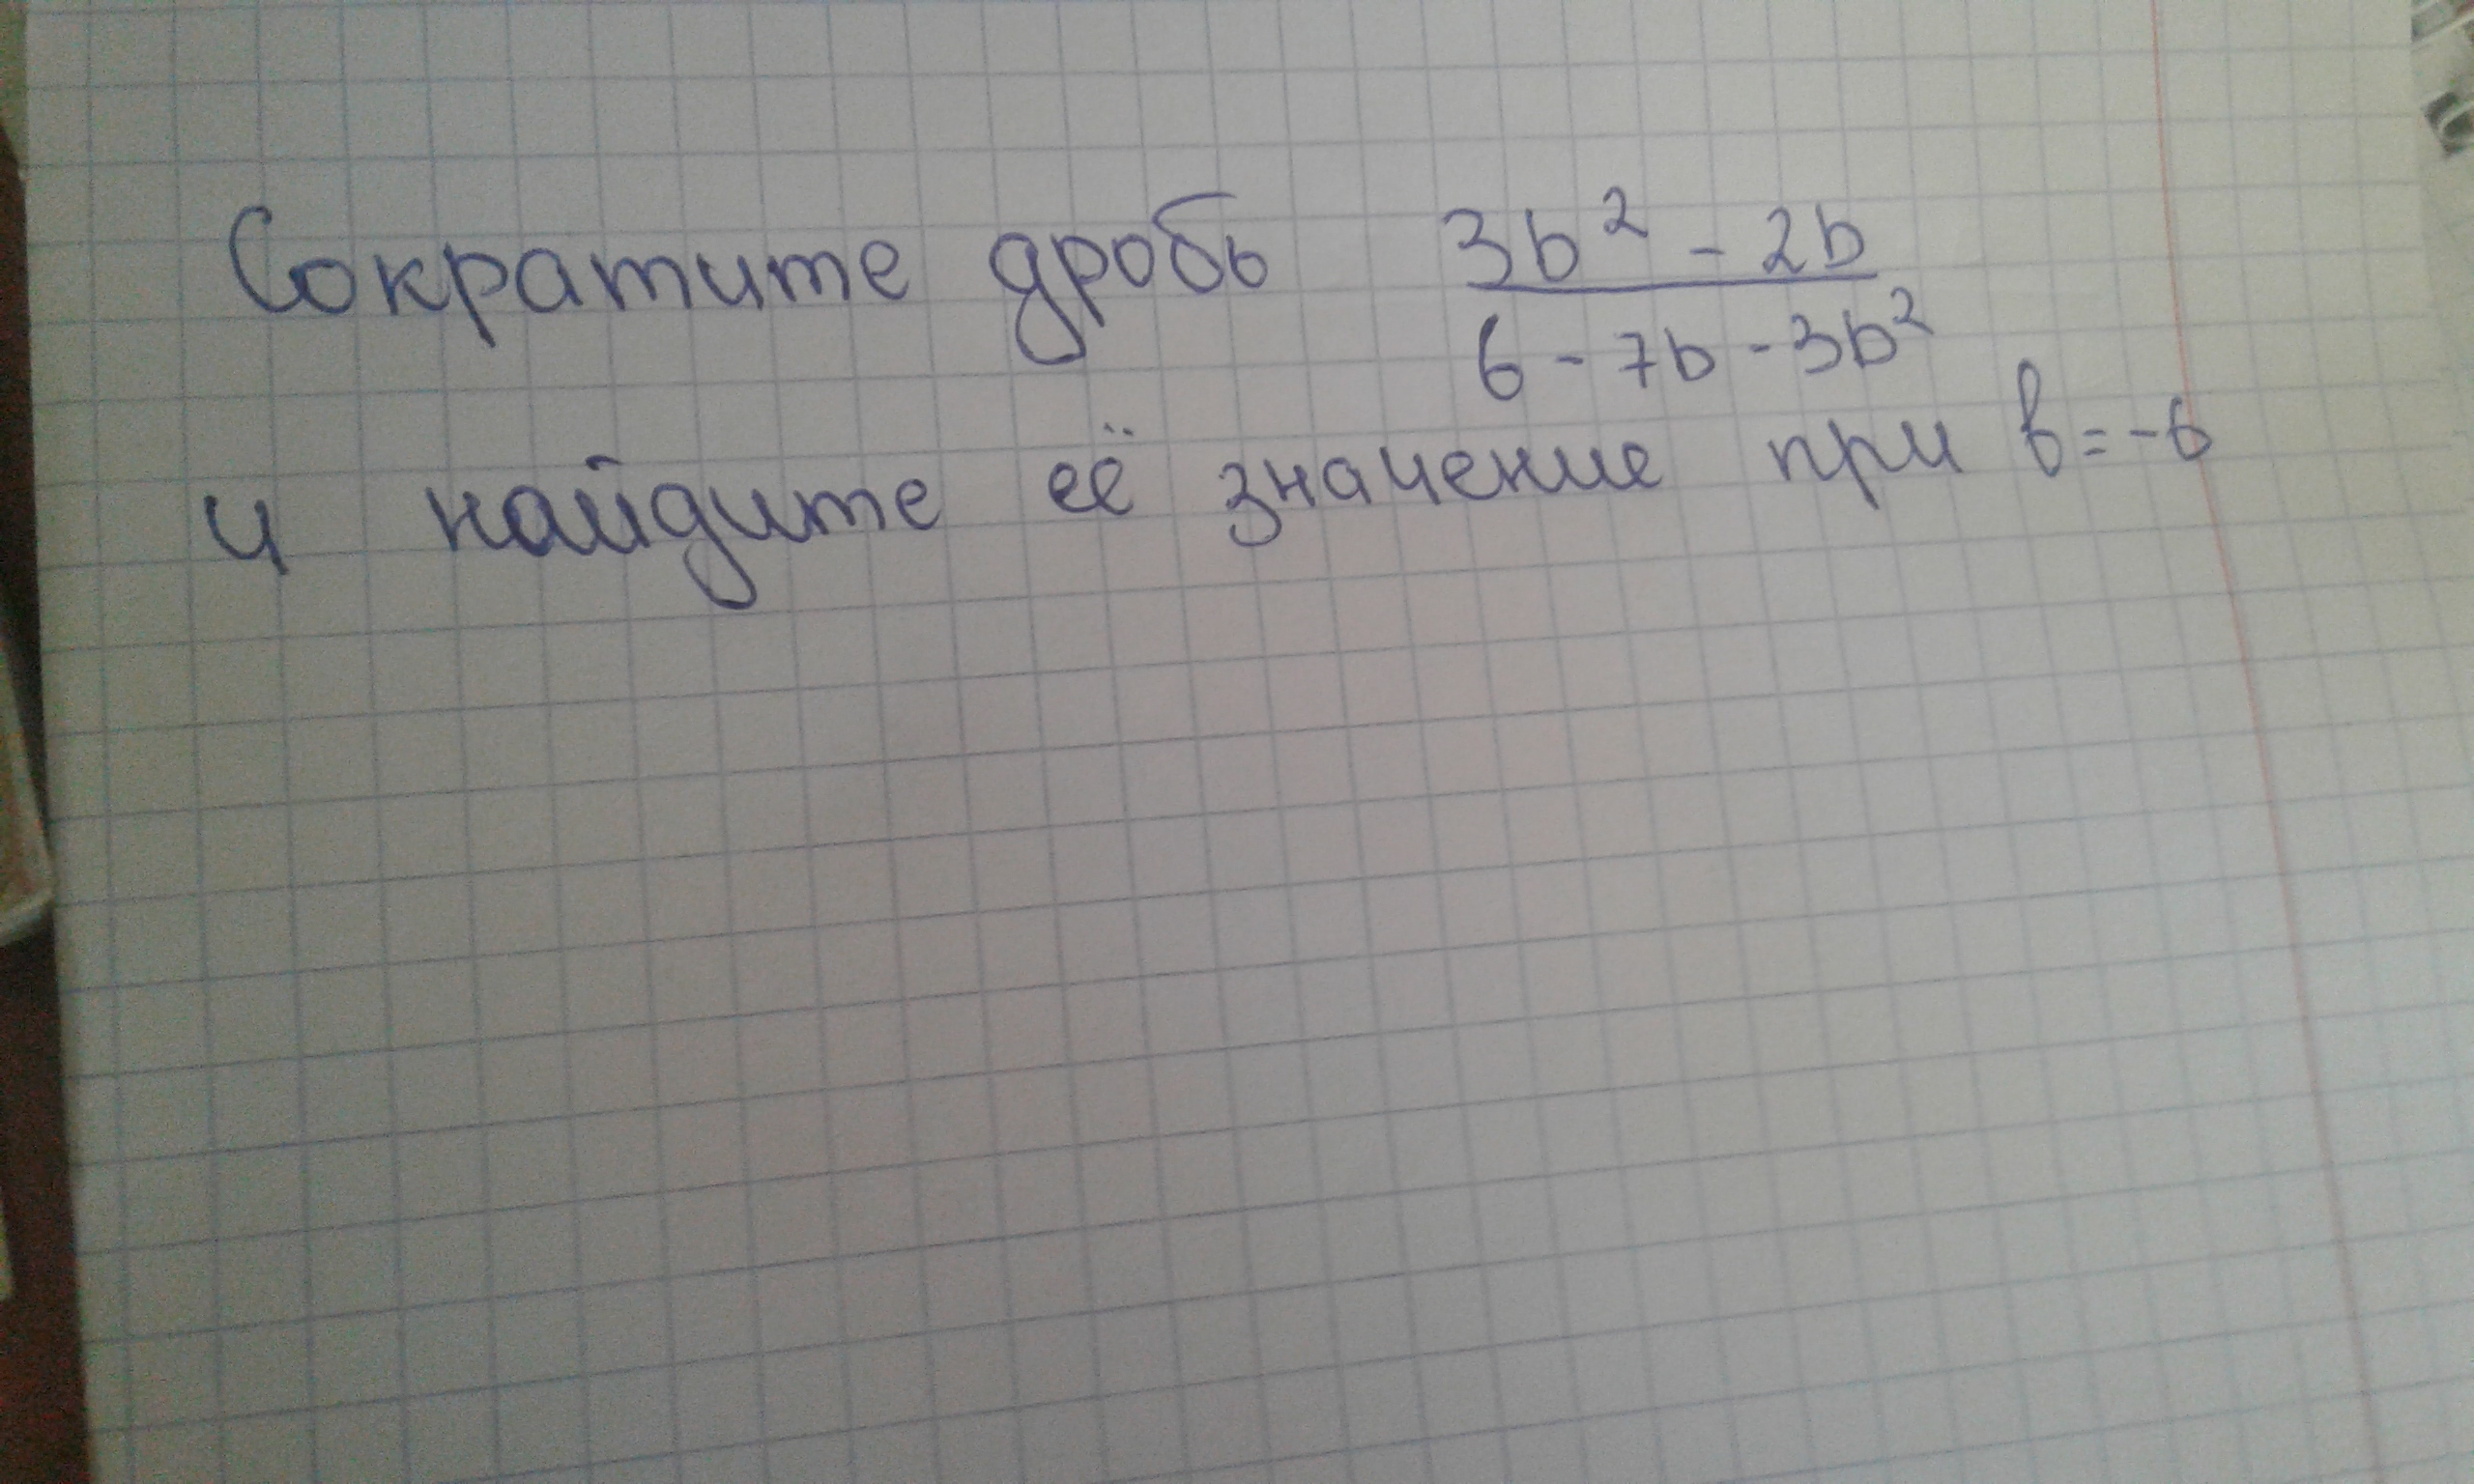 Сократите дробь (3b² - 2b)/(6 - 7b - 3b²)
и найдите её значение при b = -6